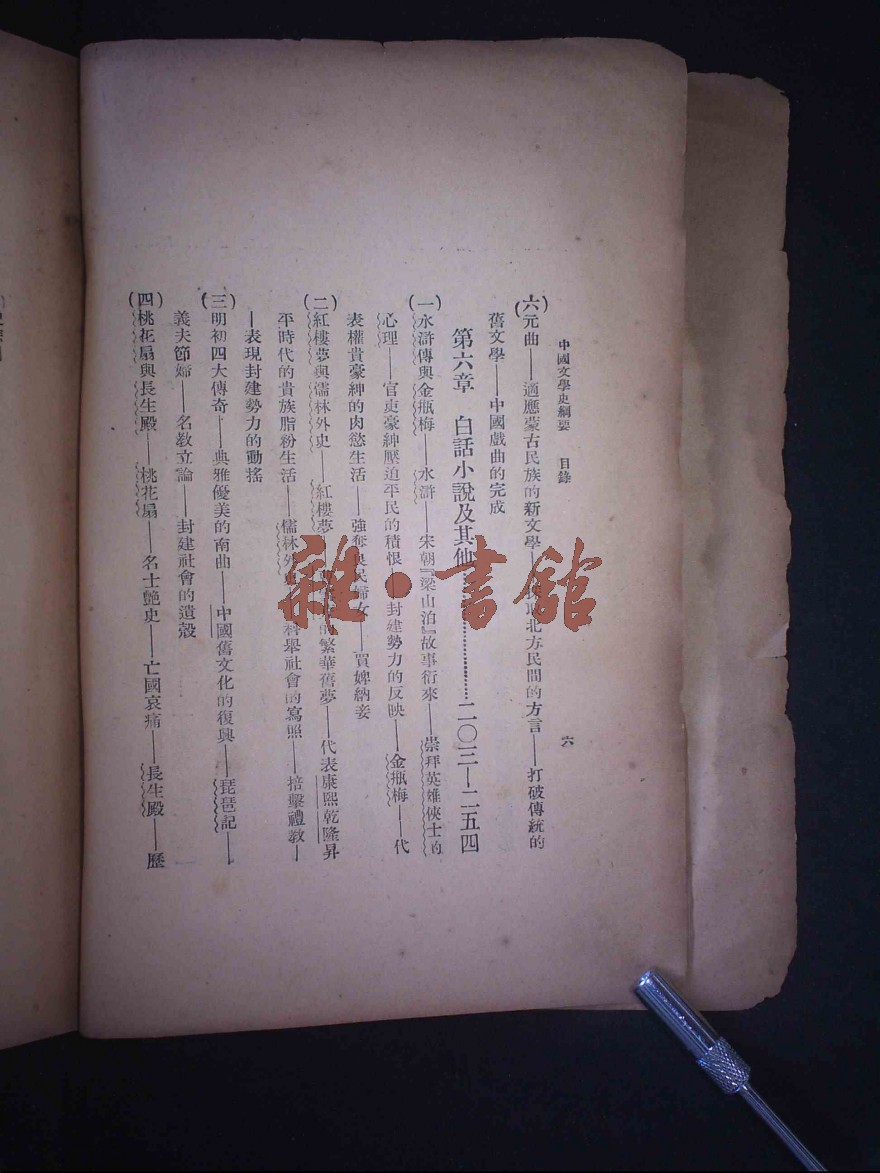 中國文學史綱要 目錄 六
(六)元曲——適應蒙古民族的新文學——北方民間的方言——打破傳統的
舊文學——中國戲曲的完成
第六章 白話小說及其他…………二〇三—二五四
(一)水滸傳與金瓶梅——水滸——宋朝『梁山泊』故事衍來——崇拜英雄俠士的
心理——官吏豪紳壓迫平民的積恨——封建勢力的反映——金瓶梅——代
表權貴豪紳的肉慾生活——強奪良民婦女——買婢納妾
(二)紅樓夢與儒林外史——紅樓夢——的繁華舊夢——代表康熙乾隆昇
平時代的貴族脂粉生活——儒林外史——科舉社會的寫照——掊擊禮教—
—表現封建勢力的動搖
(三)明初四大傳奇——典雅優美的南曲——中國舊文化的復興——琵琶記——
義夫節婦——名教立論——封建社會的遺殼
(四)桃花扇與長生殿——桃花扇——名士艷史——亡國哀痛——長生殿——歷
雜·書館